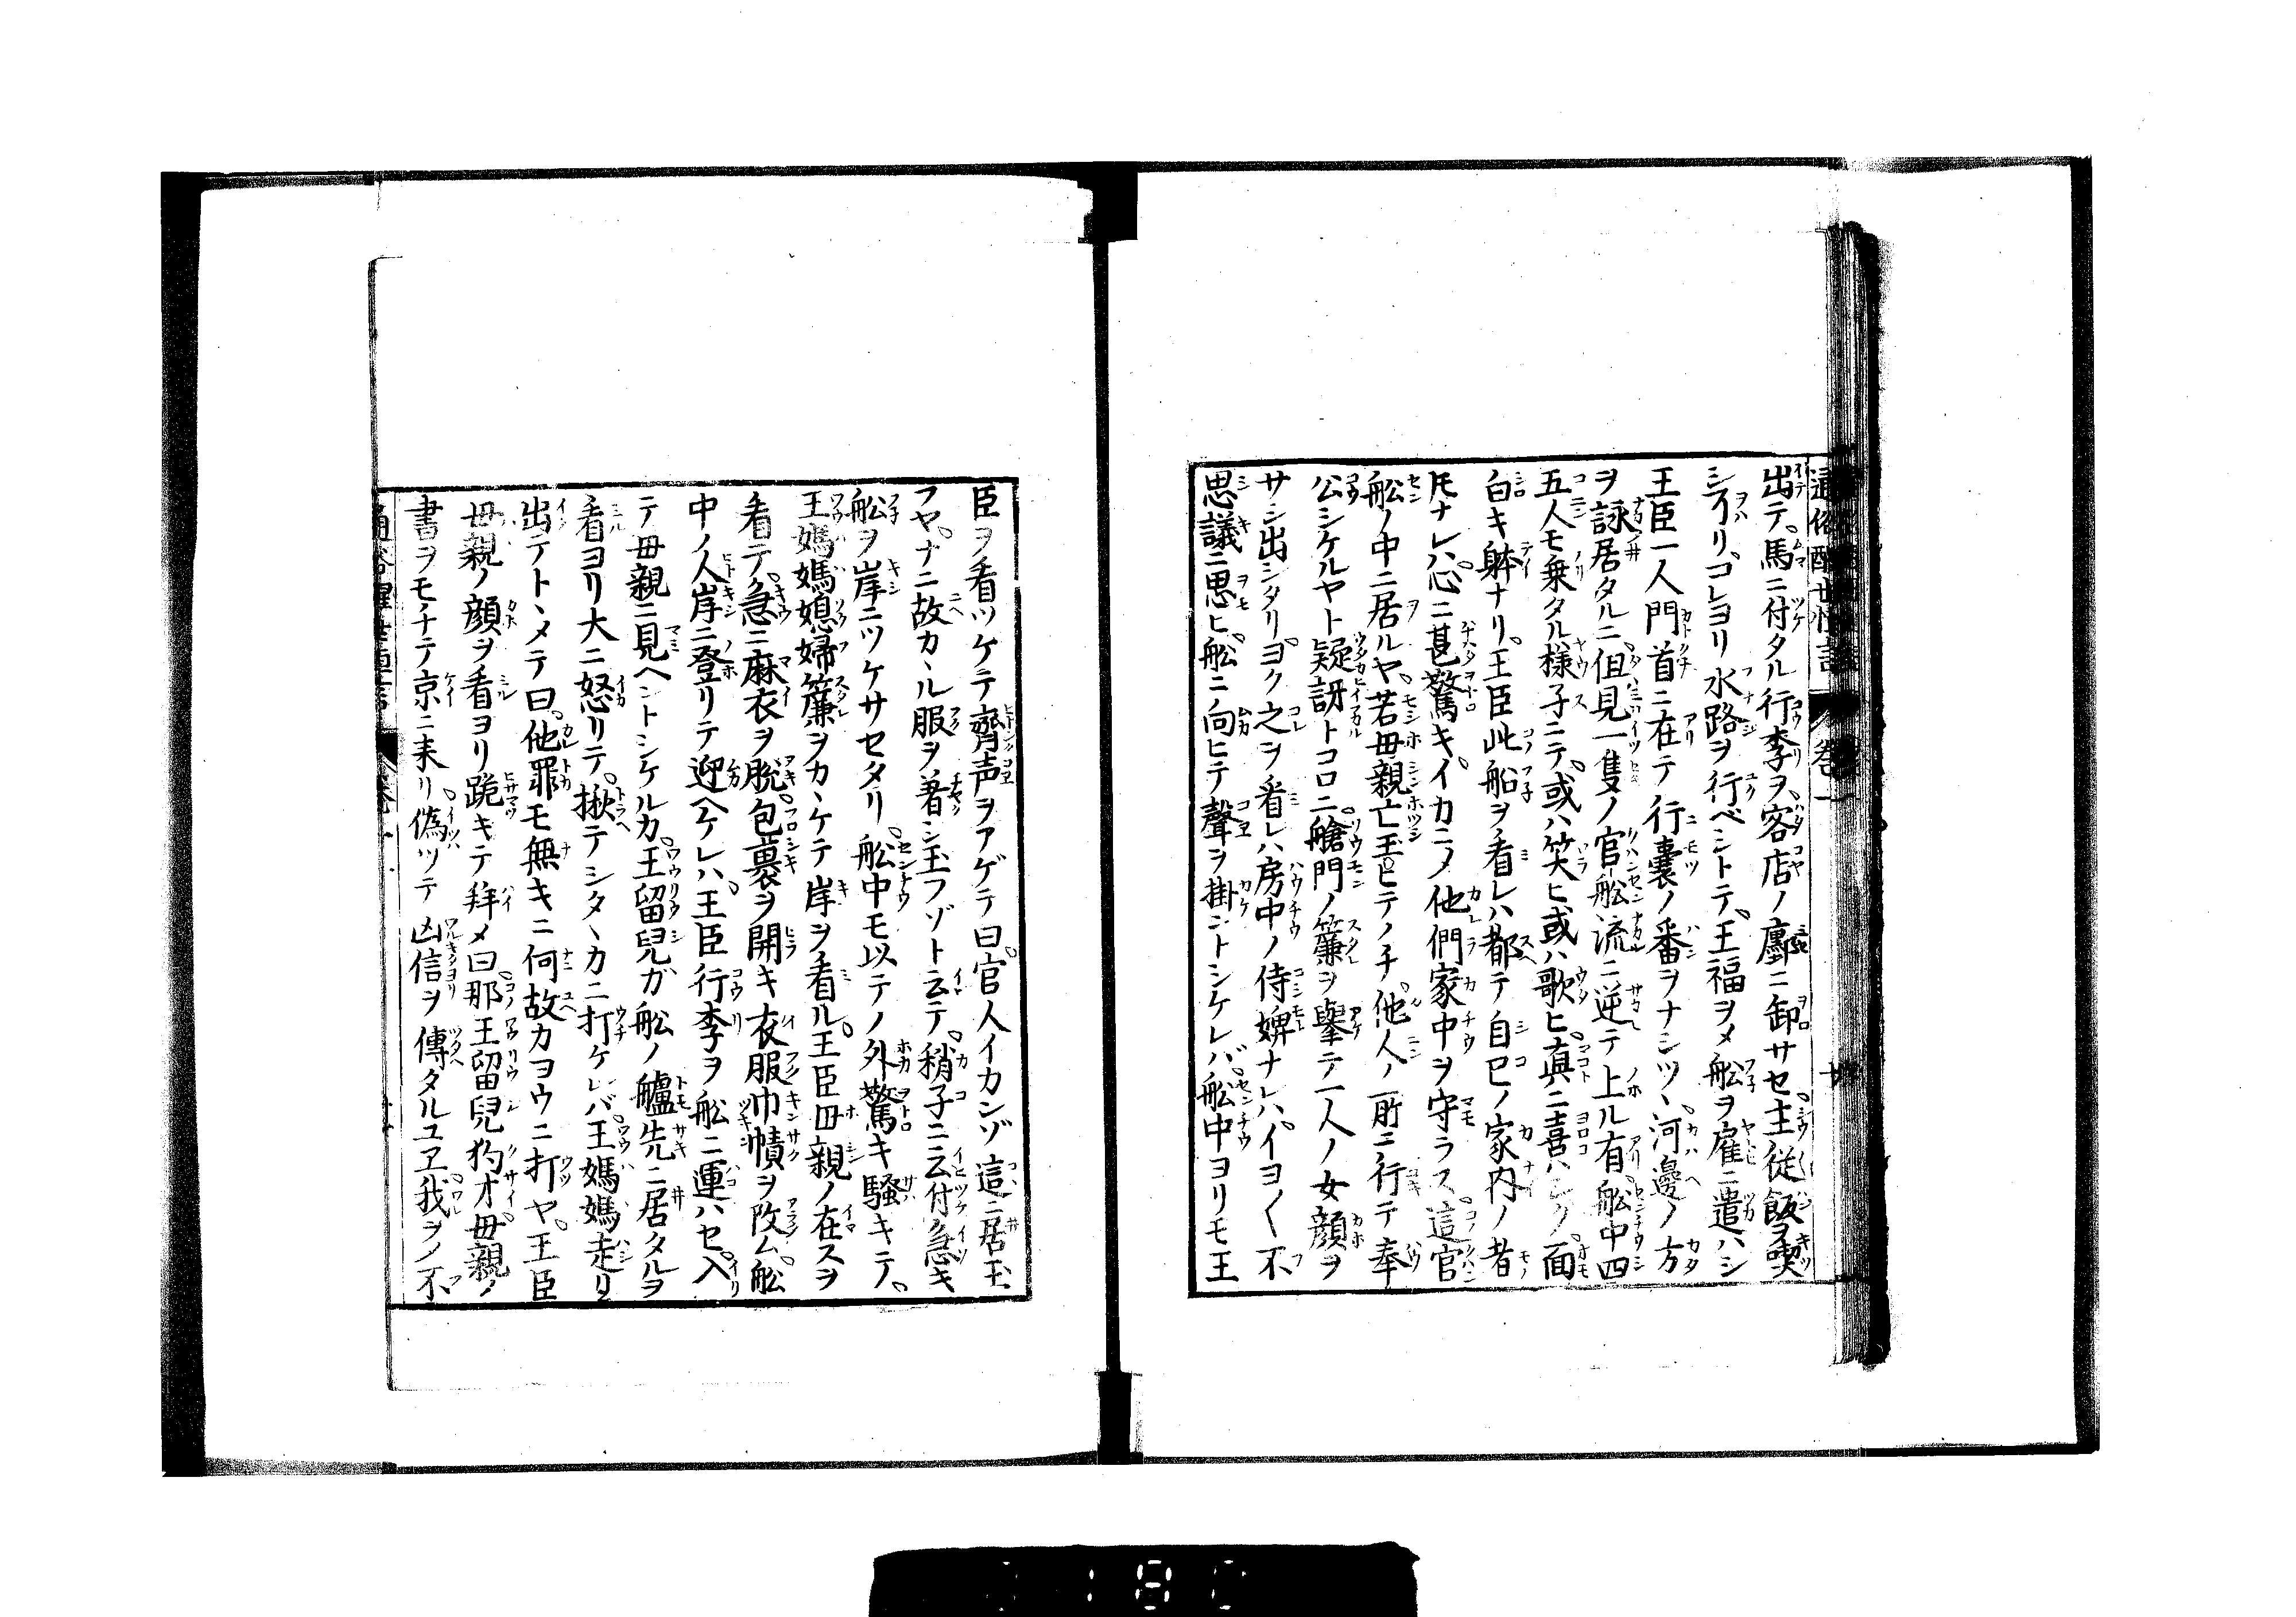 通俗醒世恒言 巻一
出テ馬ニ付タル行李ヲ客店ノ廳ニ卸サセ主従飯ヲ喫
シ了リコレヨリ水路ヲ行ベシトテ王福ヲメ舩ヲ雇ニ遣ハシ
王臣一人門首ニ在テ行囊ノ番ヲナシツヽ河邊ノ方
ヲ詠居タルニ但見一隻ノ官舩流ニ逆テ上ル有舩中四
五人モ乗タル様子ニテ或ハ笑ヒ或ハ歌ヒ真ニ喜ハシクノ面
白キ躰ナリ王臣此船ヲ看レハ都テ自已ノ家内ノ者
トモナレハ心ニ甚驚キイカニメ他們家中ヲ守ラス這官
舩ノ中ニ居ルヤ若毋親亡玉ヒテノチ他人ノ所ニ行テ奉
公シケルヤト疑訝トコロニ艙門ノ簾ヲ擧テ一人ノ女顔ヲ
サシ出シタリヨク之ヲ看レハ房中ノ侍婢ナレハイヨ〱不
思議ニ思ヒ舩ニ向ヒテ聲ヲ掛ントシケレバ舩中ヨリモ王
臣ヲ看ツケテ齊声ヲアゲテ曰官人イカンゾ這ニ居玉
フヤナニ故カヽル服ヲ著シ玉フゾト云テ稍子ニ云付急キ
舩ヲ岸ニツケサセタリ舩中モ以テノ外驚キ騒キテ
王媽媽媳婦簾ヲカヽケテ岸ヲ看ル王臣毋親ノ在スヲ
看テ急ニ麻衣ヲ脱包裹ヲ開キ衣服巾幘ヲ改ム舩
中ノ人岸ニ登リテ迎ヘケレハ王臣行李ヲ舩ニ運ハセ入
テ毋親ニ見ヘントシケルカ王留兒ガ舩ノ艫先ニ居タルヲ
看ヨリ大ニ怒リテ揪テシタヽカニ打ケレバ王媽媽走リ
出テトヽメテ曰他罪モ無キニ何故カヨウニ打ヤ王臣
毋親ノ顔ヲ看ヨリ跪キテ拜メ曰那王留兒狗才毋親ノ
書ヲモチテ京ニ来リ偽ツテ凶信ヲ傳タルユヱ我ヲノ不
通俗醒世恒言 巻一